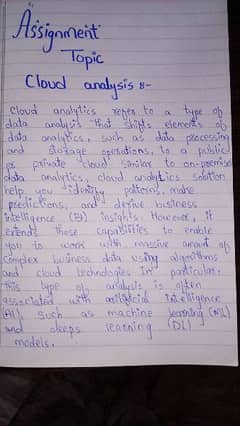 Assignment
Topic
Cloud analysis :-
Cloud analytics refer to a type of
data analysis that shifts elements of
data analytics, such as data processing
and storage operations, to a public
or private cloud. Similar to on-premise
data analytics, cloud analytics solution
help you identify patterns, make
predictions, and derive business
intelligence (BI) insights. However, it
extends these capabilities to enable
you to work with massive amount of
complex business data using algorithms
and cloud technologies. In particular.
this type of analysis is often
associated with artificial intelligence
(AI), such as machine learning (ML)
and deeps learning (DL)
models.